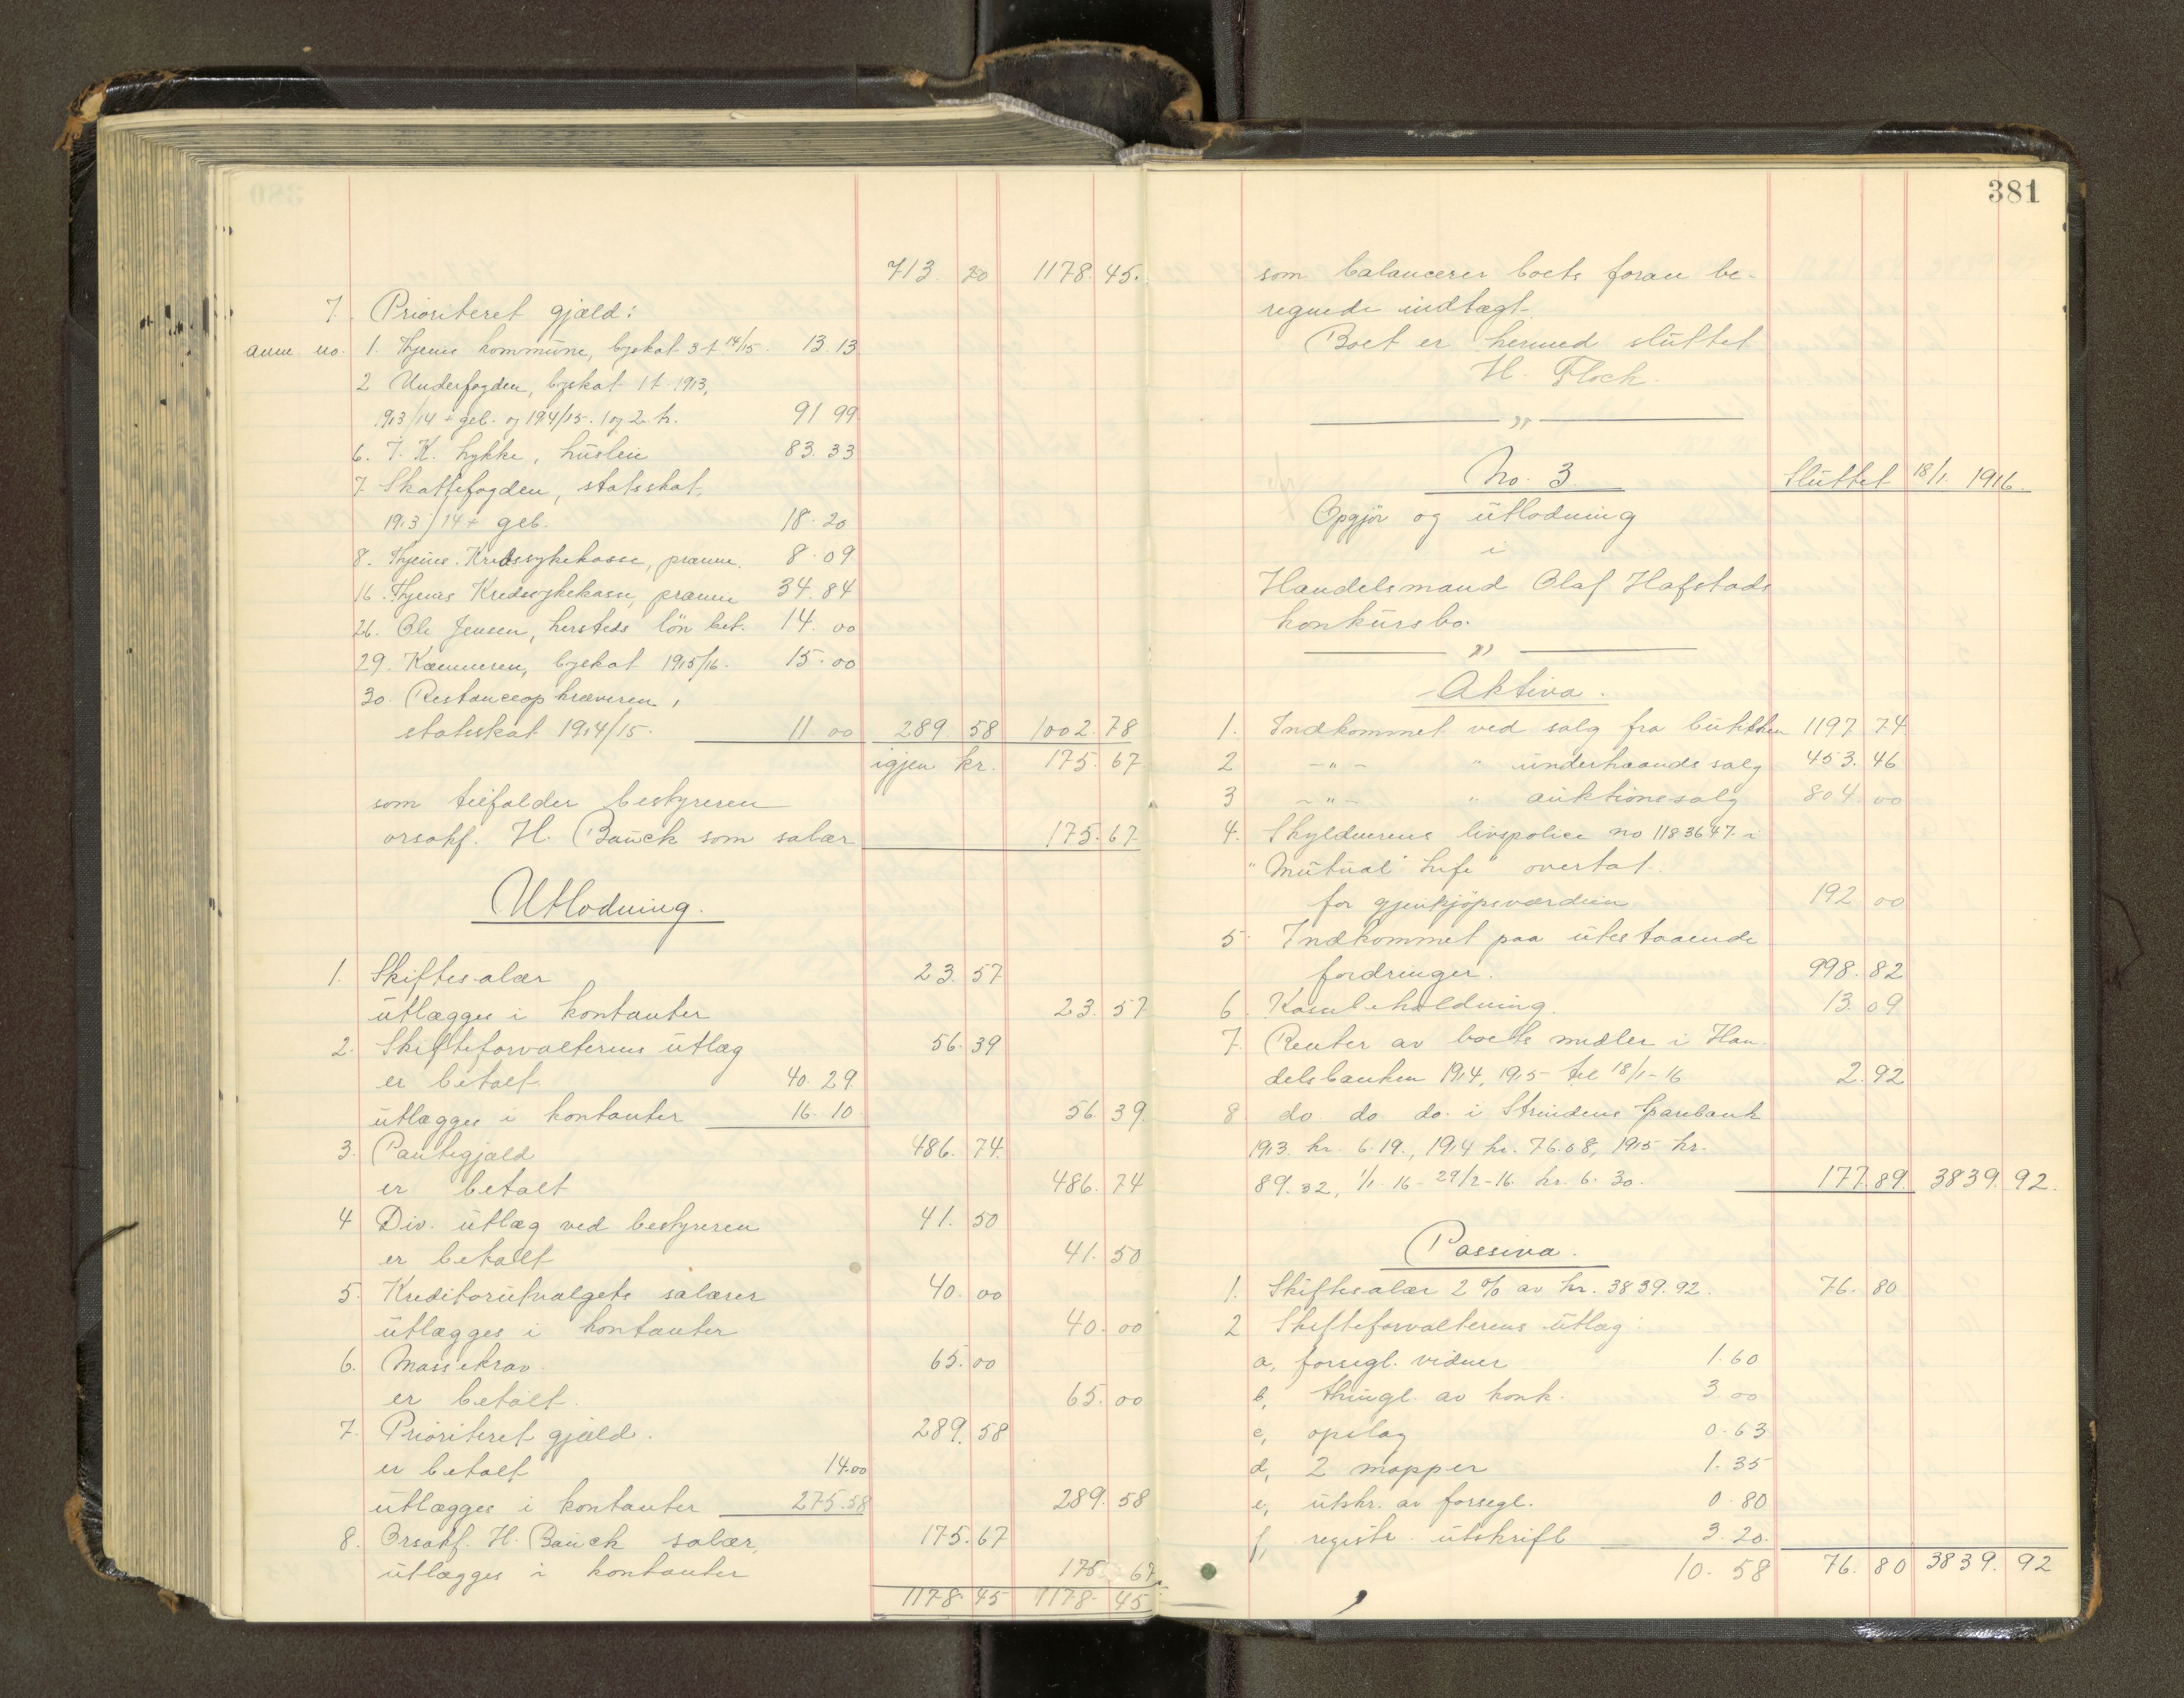 713. 20 1178. 45.
7. Prioriteret gjæld:
anm. no. 1. Thjems kommune, byskat 3 t. 14/15. 13.13
2 Underfogden, byskat 1 t. 1913,
1913/14 + geb. og 1914/15. 1 og 2 t. 91 99
6. J. K. Lykke, husleie 83.33
7. Skattefogden, statsskat,
1913/14 + geb. 18.20
8. Thjems Kredssykekasse, præmie. 8.09
16. Thjems Kredssykekasse, præmie 34.84
26. Ole Jensen, lønn bet. 14.00
29. Kæmneren, byskat 1915/16. 15.00
30. Restanceopkræveren,
statsskat 1914/15. 11 00 289 58 1002.78
igjen kr. 175.67
som tilfalder bestyreren
orsakf. H. Bauck som salær 175.67
Utlodning.
1. Skiftesalær 23.57
utlægges i kontanter 23.57
2. Skifteforvalterens utlæg 56.39
er betalt 40.29
utlægges i kontanter 16.10 56 39.
3. Pantegjæld 486.74.
er betalt 486.74
4 Div. utlæg ved bestyreren 41.50
er betalt 41.50
5. Kreditorutvalgets salærer 40.00
utlægges i kontanter 40.00
6. Massekrav. 65.00
er betalt. 65.00
7. Prioriteret gjæld. 289.58
er betalt 14.00
utlægges i kontanter 275.58 289.58
8. Orsakf. H. Bauck salær, 175.67
utlægges i kontanter 175 67
1178.45 1178.45
381
som balancerer boets foran be-
regnede indtægt.
Boet er hermed sluttet
H. Floch.
No. 3. Sluttet 18/1. 1916.
Opgjör og utlodning
i
Handelsmand Olaf Hafstads
konkursbo.
Aktiva.
1. Indkommet ved salg fra butikken 1197 74
2 -"- " underhaands salg 453.46
3 -"- " auktionssalg 804.00
4. Skyldnerens livspolice no 1183647 i
"Mutual Life" overtat.
for gjenkjöpsværdien 192 00
5. Indkommet paa utestaaende
fordringer. 998.82
6. Kassebeholdning. 13.09
7. Renter av boets midler i Han-
delsbanken 1914, 1915 til 18/1-16 2.92
8 do do do. i Strindens Sparebank
1913. kr. 6.19., 1914 kr. 76.08, 1915 kr.
89.32, 1/1.16 - 29/2-16. kr. 6.30. 177.89. 3839.92.
Passiva.
1. Skiftesalær 2 % av kr. 3839.92. 76.80
2 Skifteforvalterens utlæg:
a, forsegl. vidner 1.60
b, thingl. av konk. 3 00
c, opslag 0.63
d, 2 mapper 1.35
e, utskr. av forsegl. 0.80
f, registr. utskrift 3.20.
10.58 76.80 3839.92